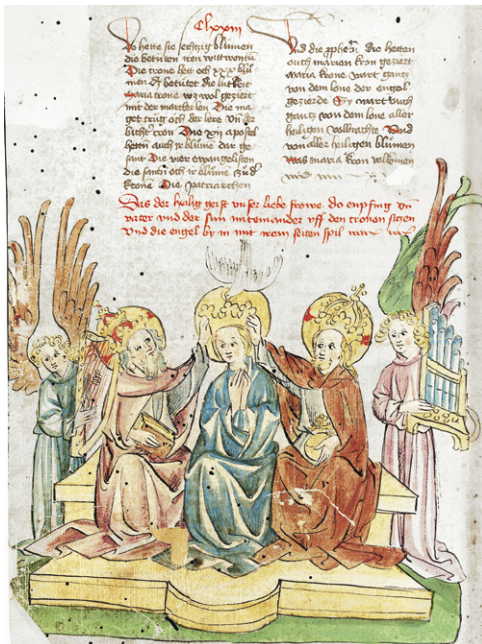 Clxxiii
So hette sie sechtzig blůmen
die betutten iren wittwentů
Die trone hett och xxx blů
men dz betůtet die
maria trone wz wol geziert
mit der marter kon Die ma
get trůg och der lere vn der
bicht Die xii apostel
hettn auch ir blůme dar ge
sant Die vier ewangelisten
die santn och ir blůme zů d
krone Die patriarchen
Vnd die ꝓpheten die hetten
ouch marien kron geziert
Maria krone wart gantz
von dem lone der engel
gezierde Sy wart ouch
gantz von dem lone aller
heiligen volbrachte Vnd
von aller heiligen blůmen
was maria kron volkumen
Das der heilig geist vnser liebe frowe do enpfing vn
vater vnd der sun mit einander vff den tronen sitzen
vnd die engel by in mit irem seiten spil